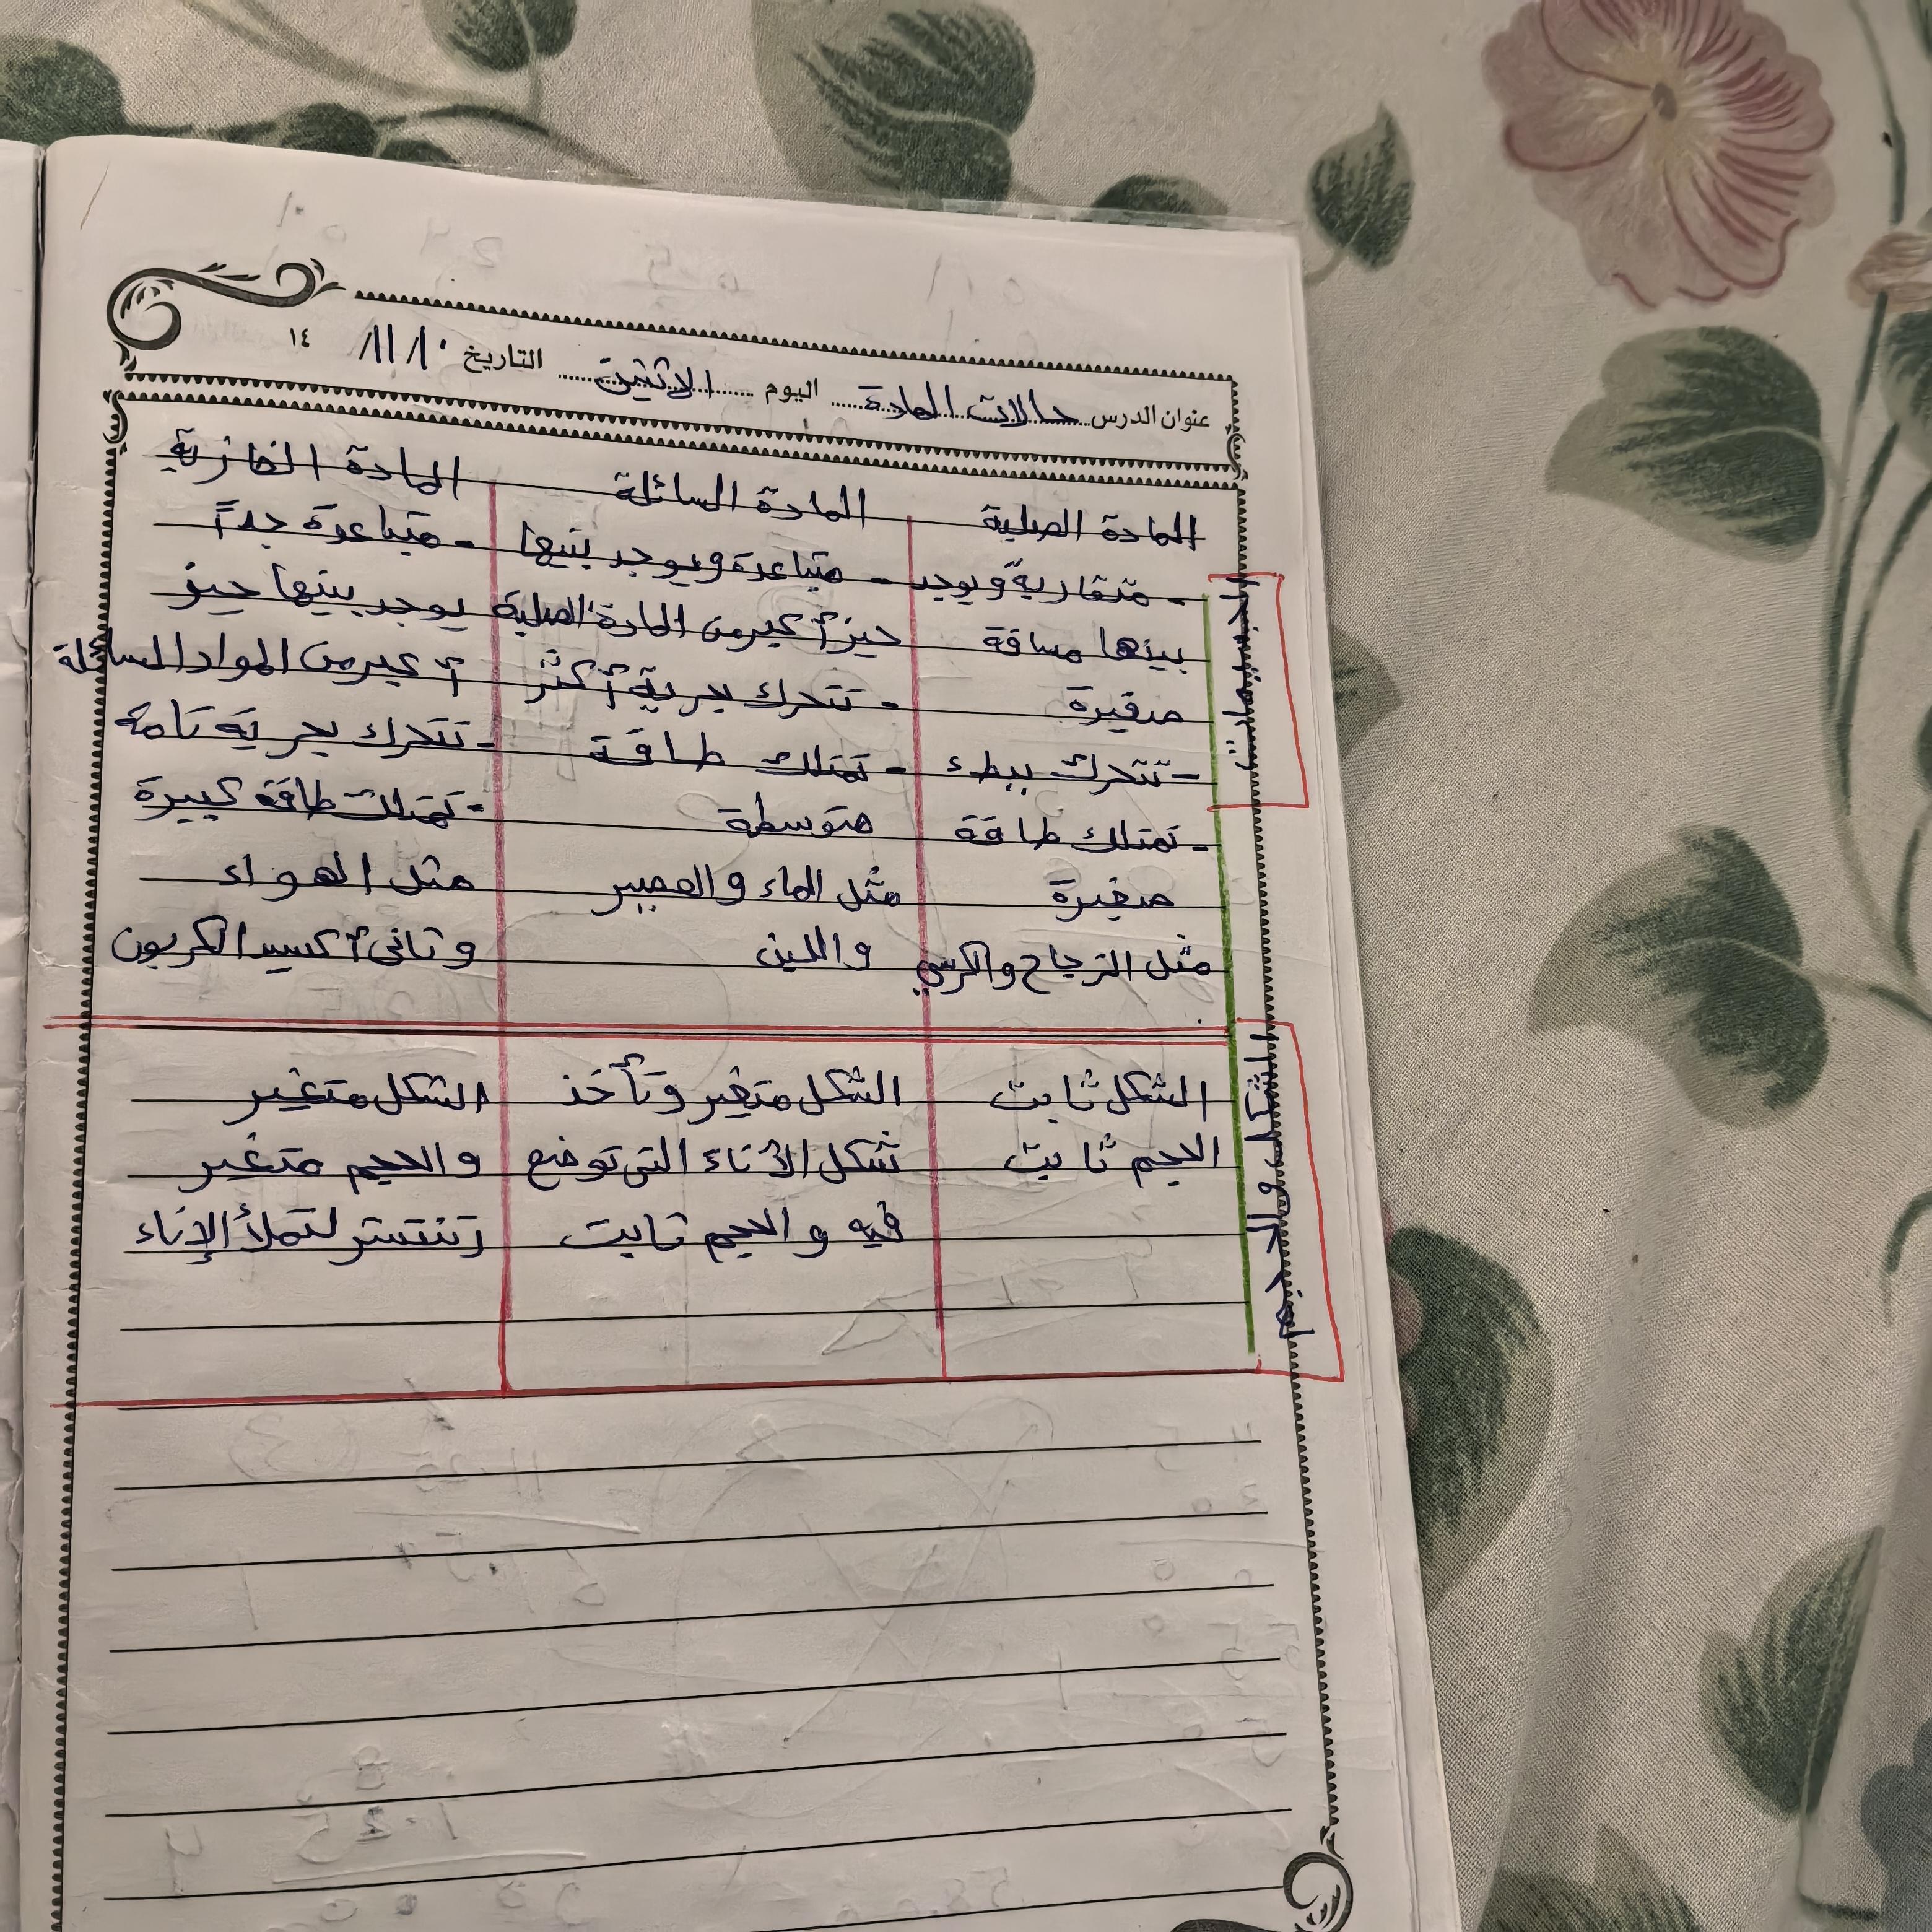 عنوان الدرس حالات المادة اليوم الاثنين التاريخ ١٠/١١/ ١٤
المادة الصلبة المادة السائلة المادة الغازية
- متقاربة ويوجد - متباعدة ويوجد بينها - متباعدة جداً
بينها مسافة حيز أكبر من المادة الصلبة يوجد بينها حيز
صغيرة - تتحرك بحرية أكثر أكبر من المواد السائلة
- تتحرك ببطء - تمتلك طاقة - تتحرك بحرية تامة
- تمتلك طاقة متوسطة - تمتلك طاقة كبيرة
صغيرة مثل الماء والعصير مثل الهواء
مثل الزجاج والكرسي واللبن وثانى أكسيد الكربون
الجسيمات
الشكل ثابت الشكل متغير وتأخذ الشكل متغير
الحجم ثابت شكل الأناء التى توضع والحجم متغير
فيه والحجم ثابت تنتشر لتملأ الإناء
الشكل والحجم